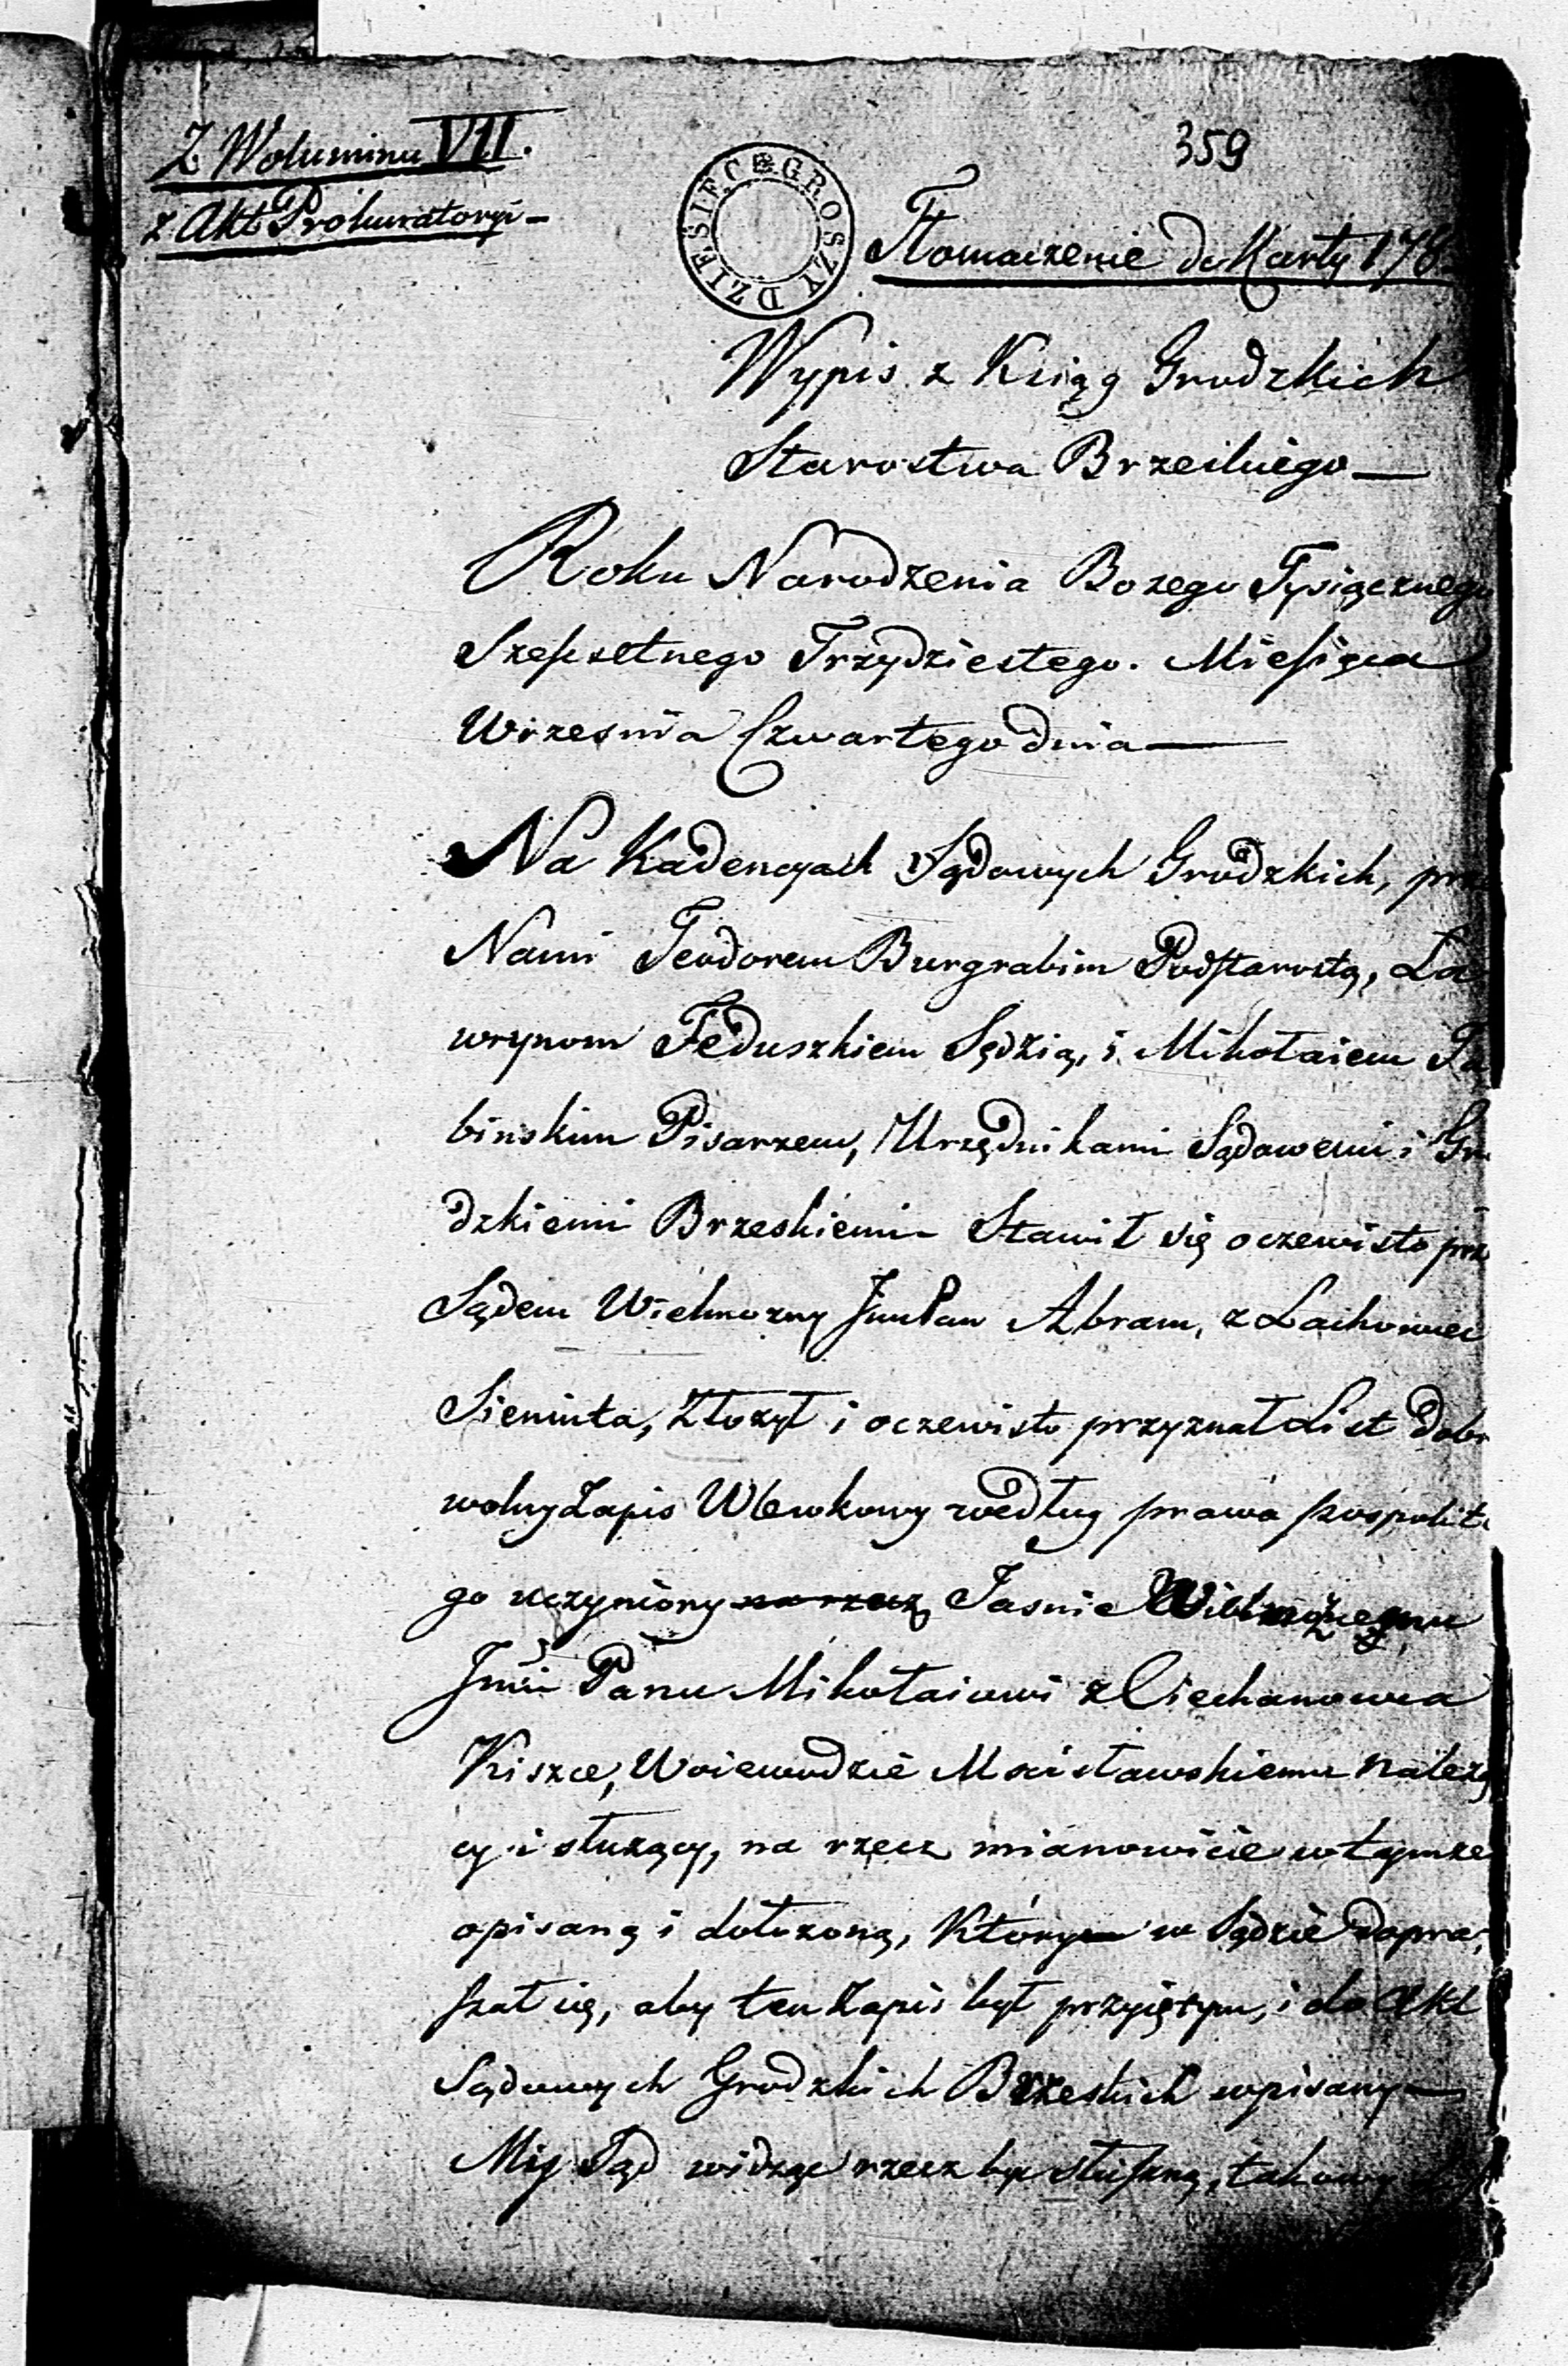 Z Woluminu VII.
z Akt Prokuratoryi —
359
DZIESIĘĆ GROSZY
Tłomaczenie do Karty 178
Wypis z Ksiąg Grodzkich
Starostwa Brzeskiego —
Roku Narodzenia Bozego Tysiącznego
Szesnsetnego Trzydziestego. Miesiąca
Wrzesnia Czwartego dnia —
Na Kadencyach Sądowych Grodzkich, prz
Nami Teodorem Burgrabim Podstarostą, La
wrynom Feduszkiem Sędzią, i Mikołaiem
binskim Pisarzem, Urzędnikami Sądowemi i Gro
dzkiemi Brzeskiemi — Stawił się oczewisto prz
Sądem Wielmozny JmPan Abram, z Lachowiec
Sieniuta, Złozył i oczewisto przyznał List dobr
wolny Zapis Wlewkowy według prawa pospolite
go uczyniony na rzecz Jasnie Wielmożnemu
Jmci Panu Mikołaiowi z Ciechanowca
Kiszce, Woiewodzie Mscisławskiemu należą
cy i słuzący, na rzecz mianowicie w tymze
opisaną i dołozoną, który w Sądzie dopra
szał się, aby ten Zapis był przyiętym, i do Akt
Sądowych Grodzkich Brzeskich wpisany —
My Sąd widząc rzecz być słuszną, takowy